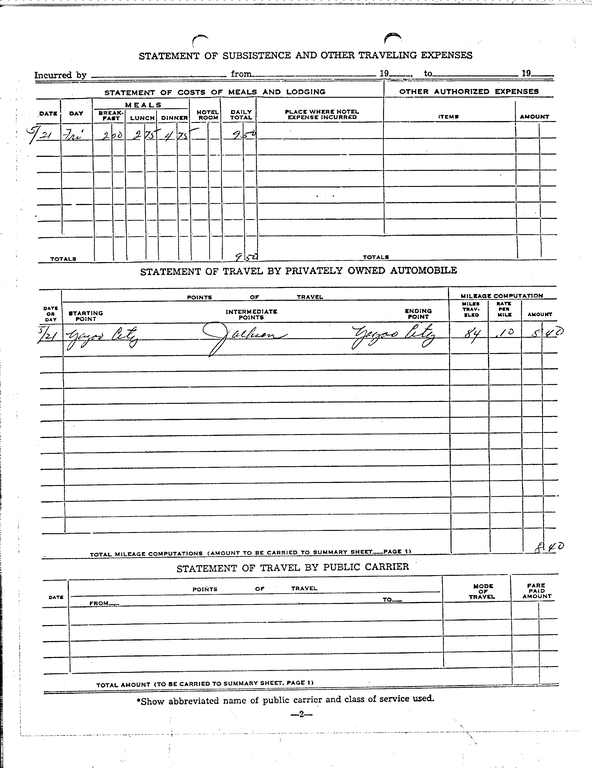 STATEMENT OF SUBSISTENCE AND OTHER TRAVELING EXPENSES
Incurred by from 19 , to 19
STATEMENT OF COSTS OF MEALS AND LODGING OTHER AUTHORIZED EXPENSES
DATE DAY MEALS HOTEL ROOM DAILY TOTAL PLACE WHERE HOTEL EXPENSE INCURRED ITEMS AMOUNT
BREAK-FAST LUNCH DINNER
5/21 Fri 2 00 2 75 4 75 9 50
TOTALS 9 50 TOTALS
STATEMENT OF TRAVEL BY PRIVATELY OWNED AUTOMOBILE
DATE OR DAY POINTS OF TRAVEL MILEAGE COMPUTATION
STARTING POINT INTERMEDIATE POINTS ENDING POINT MILES TRAV-ELED RATE PER MILE AMOUNT
5/21 Yazoo City Jackson Yazoo City 84 .10 8 40
TOTAL MILEAGE COMPUTATIONS (AMOUNT TO BE CARRIED TO SUMMARY SHEET PAGE 1) 8 40
STATEMENT OF TRAVEL BY PUBLIC CARRIER
DATE POINTS OF TRAVEL MODE OF TRAVEL FARE PAID AMOUNT
FROM TO
TOTAL AMOUNT (TO BE CARRIED TO SUMMARY SHEET, PAGE 1)
*Show abbreviated name of public carrier and class of service used.
—2—